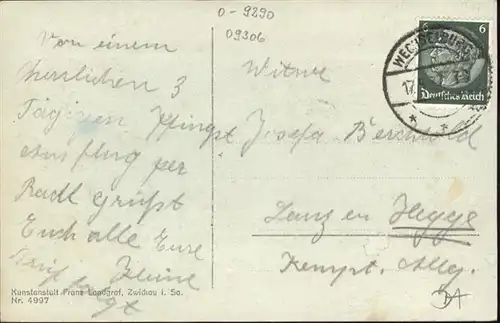 0-9290
09306
Von einem
herrlichen 3
Tägigen Pfingst
Ausflug per
Radl grüßt
Euch alle Eure
folgt
Witwe
Josefa
Hegge
Kempt. Allg.
6 6
WECHSELBURG
17
Deutsches Reich
Kunstanstalt Franz Landgraf, Zwickau i. Sa.
Nr. 4997